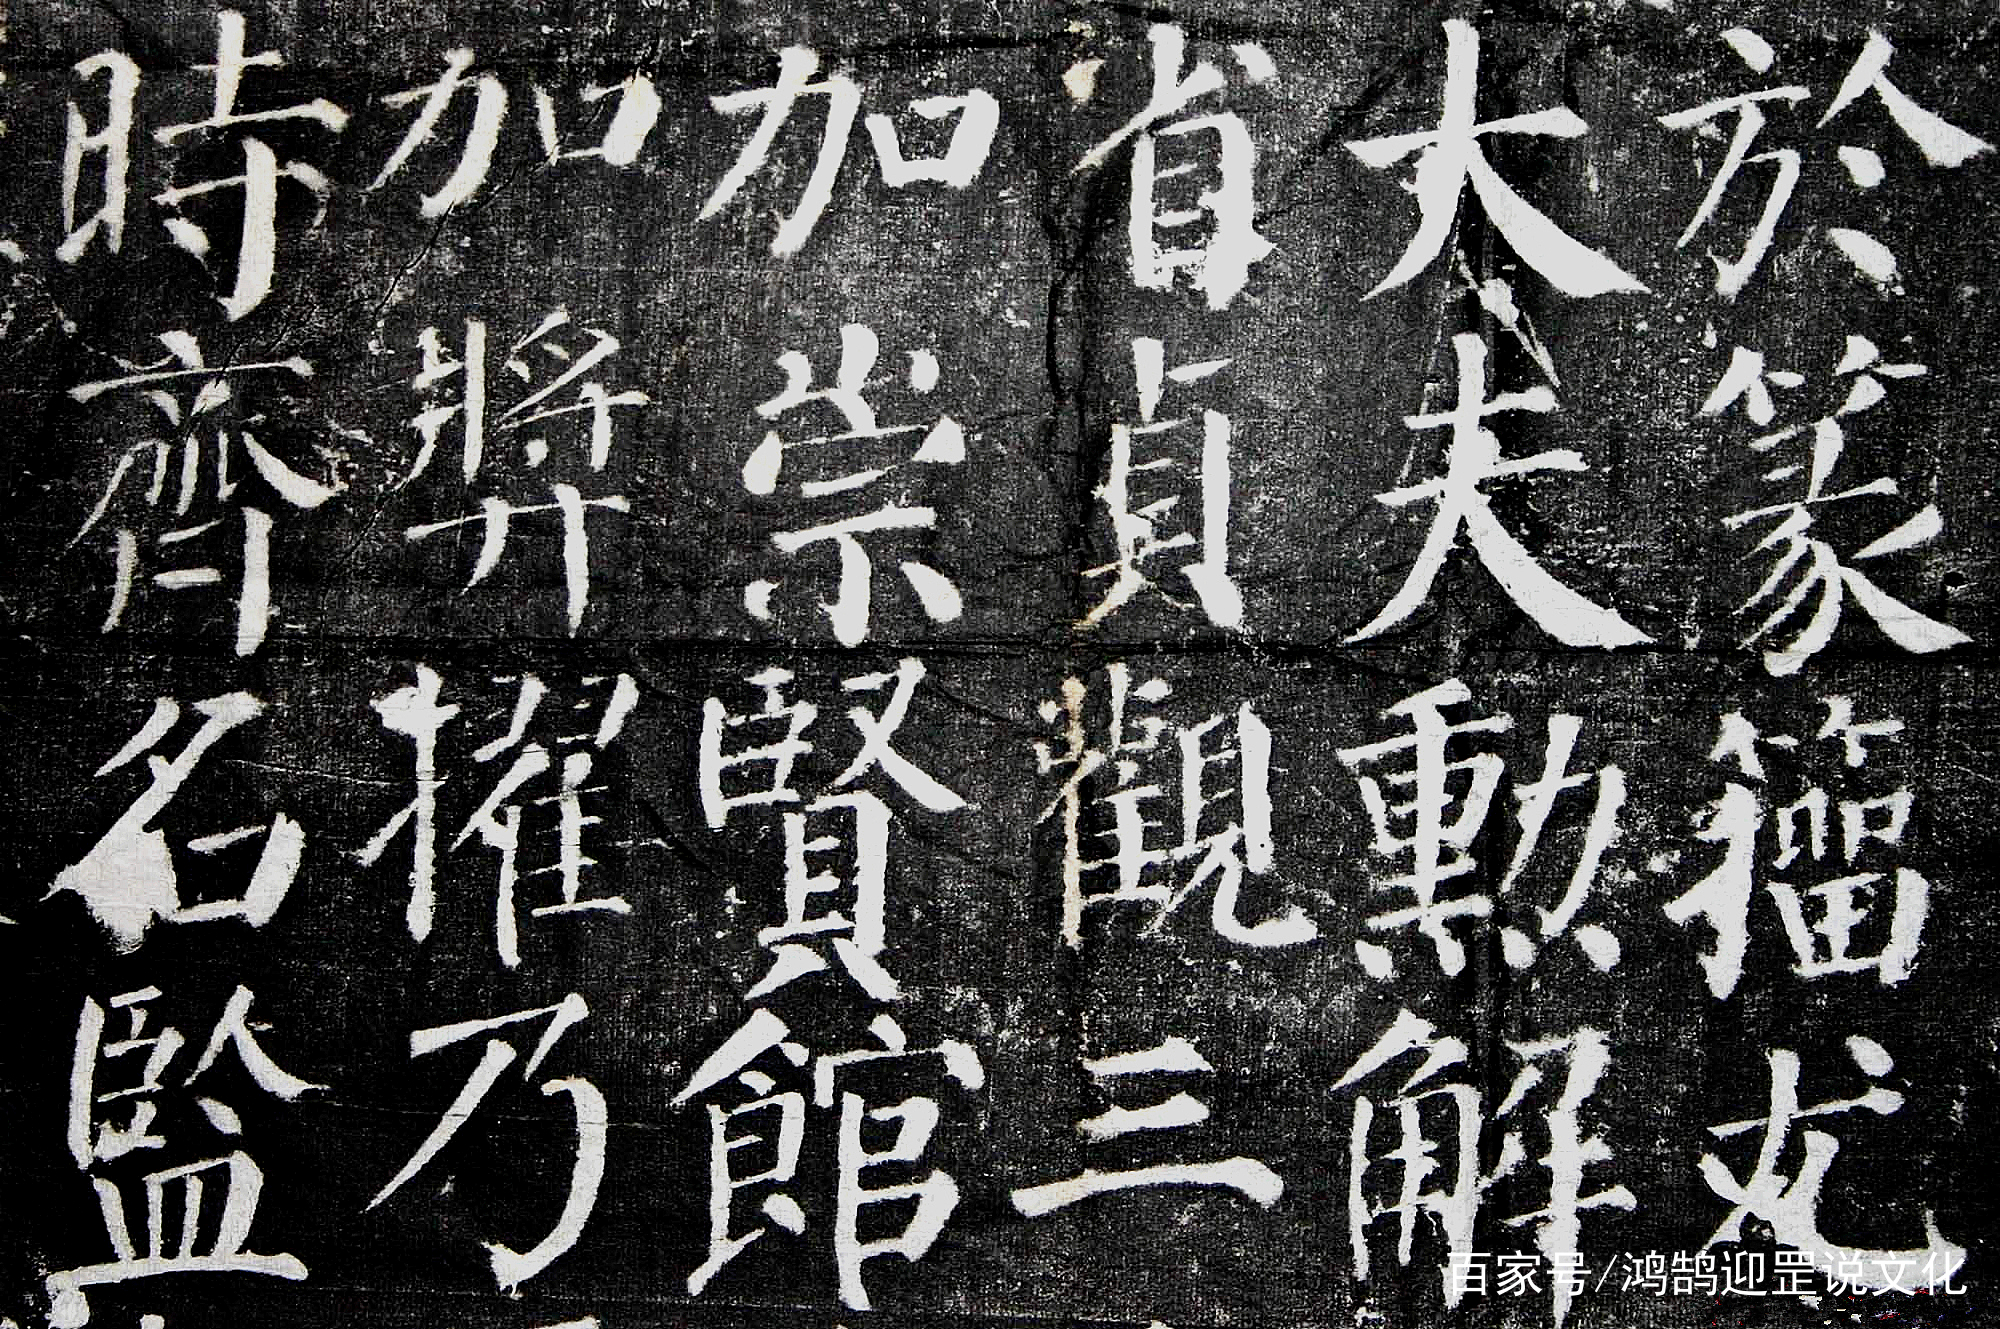 於篆籀尤
大夫勳解
省貞觀三
加崇賢館
加奬擢乃
時齊名監
百家号/鸿鹄迎罡说文化